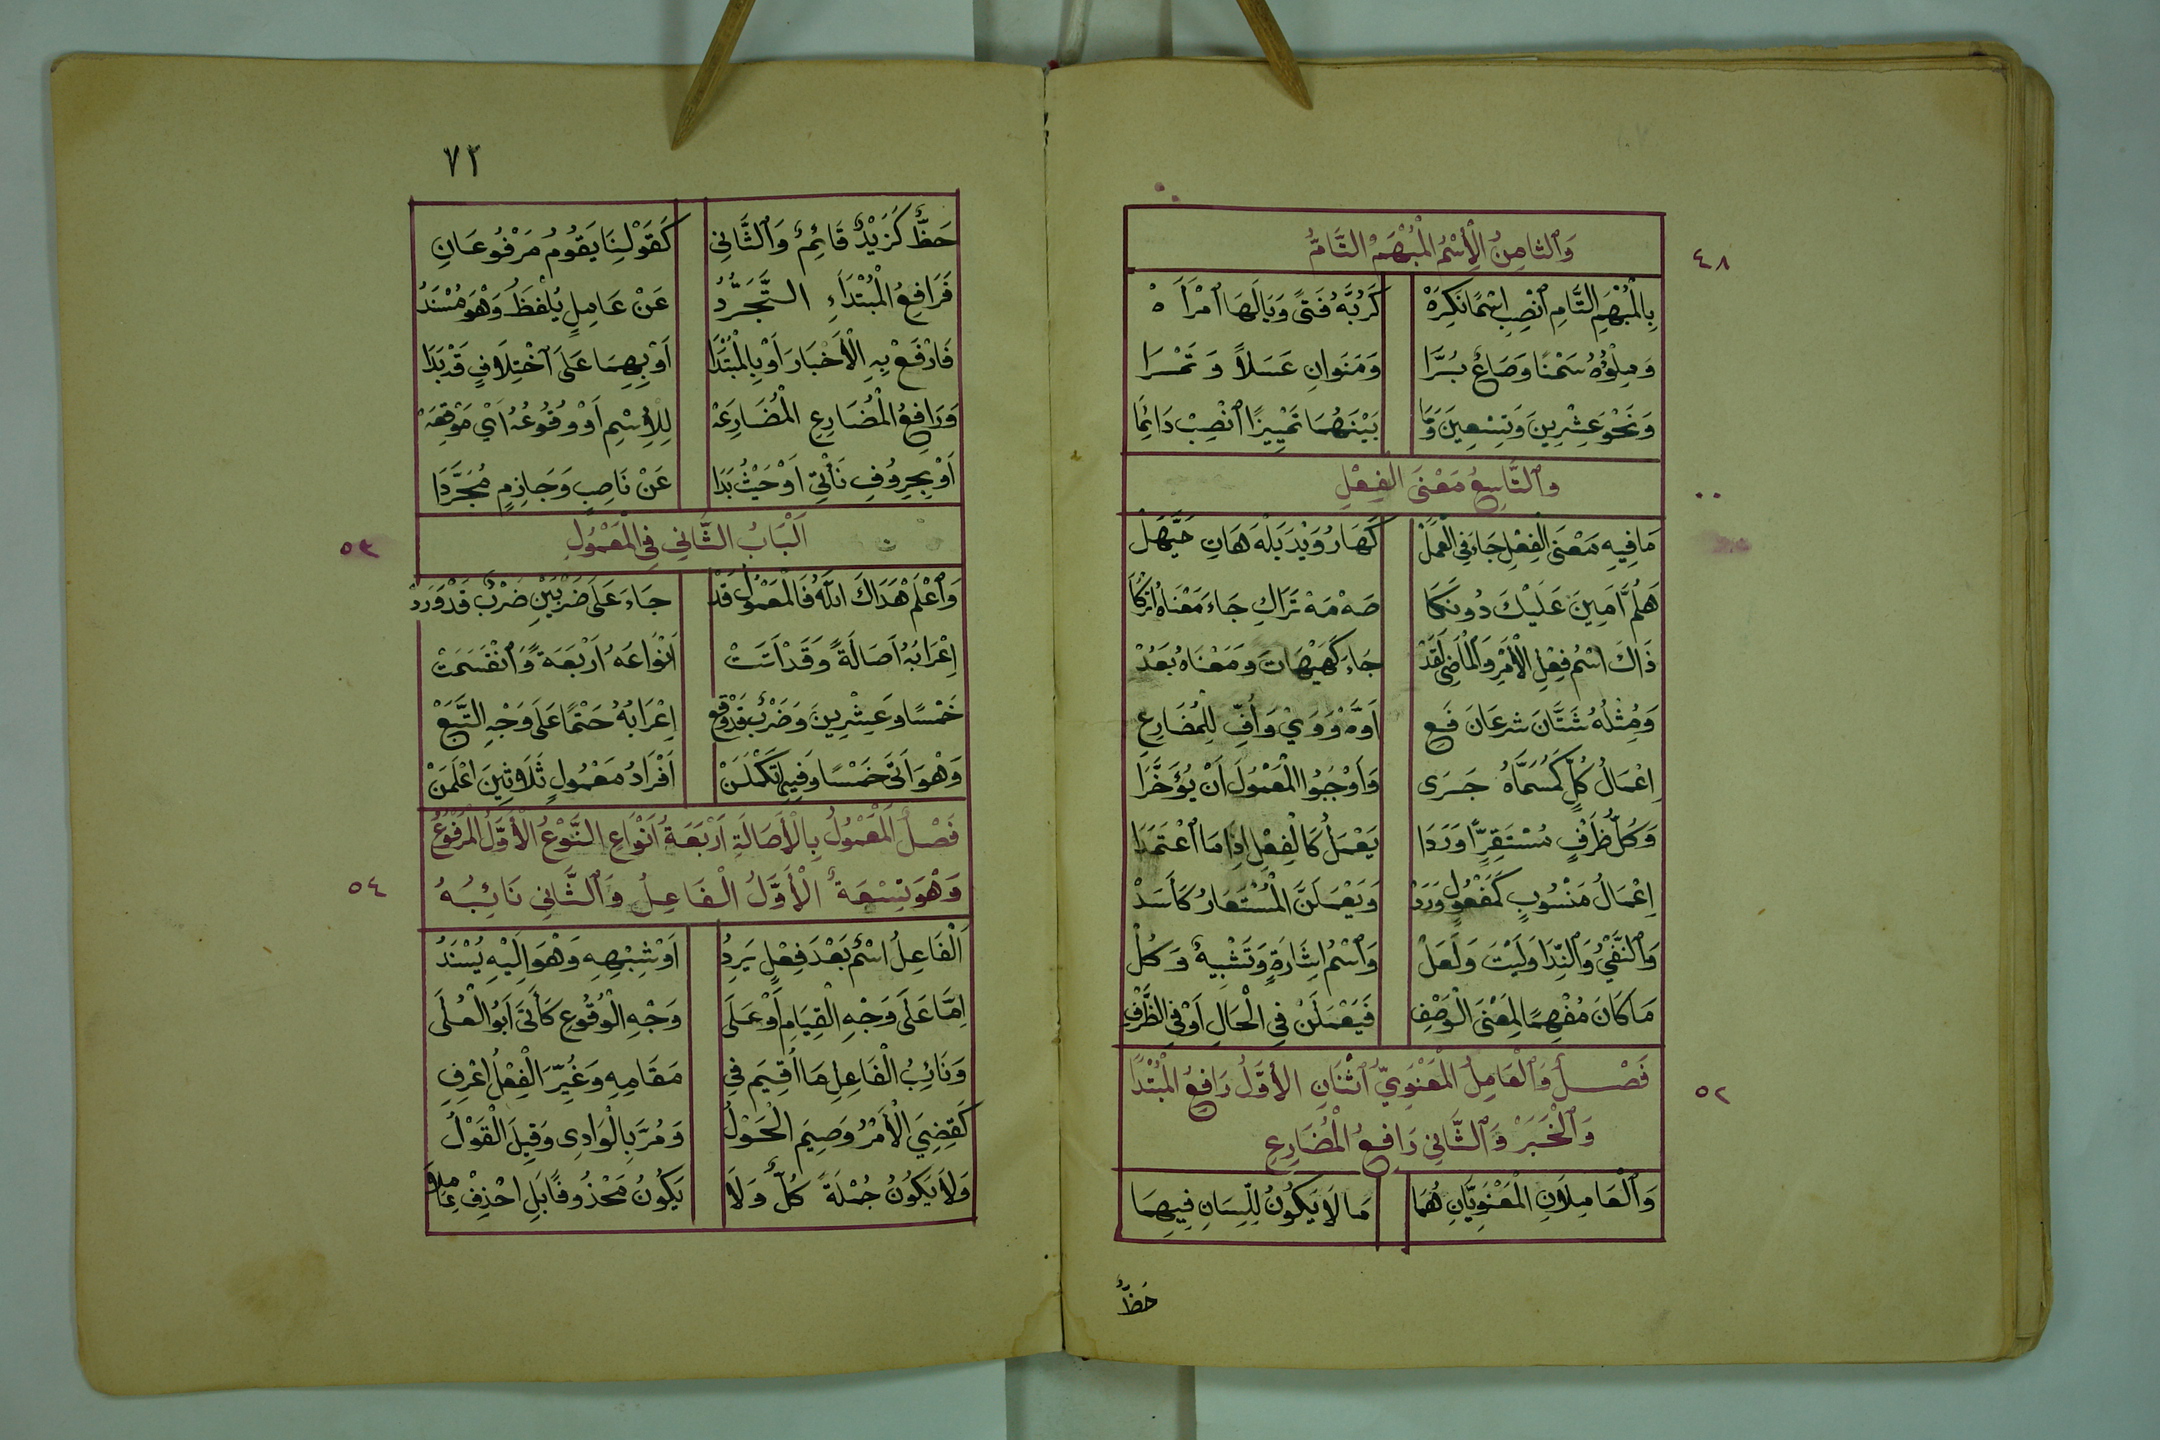 وَٱلثامِنُ الْإِسْمُ الْمُبْهَمُ التَّامُّ
٤٨
بِالْمُبْهَمِ التَّامِ ٱنْصِبِ اسْمًا نَكِرَهْ كَرُبَّهُ فَتًى وَيَالَهَا ٱمْرَأَهْ
وَمِلْؤُهُ سَمْنًا وَصَاعٌ بُرَّا وَمَنَوانِ عَسَلاً وَتَمْرَا
وَنَحْوَ عِشْرِينَ وَتِسْعِينَ وَمَا بَيْنَهُمَا تَمْيِيزًا ٱنْصِبْ دَائِمَا
وَٱلتَّاسِعُ مَعْنَى الفِعْلِ
مَا فِيهِ مَعْنَى الْفِعْلِ جَاءَ فِى الْعَمَلْ كَهَا رُوَيْدَ بَلْهَ هَاتِ حَيَّهَلْ
هَلُمَّ آمِينَ عَلَيْكَ دُونَكَا صَهْ مَهْ تَرَاكِ جَاءَ مَعْنَاهُ اتْرُكَا
ذَاكَ اسْمُ فِعْلِ الْأَمْرِ وَالْمَاضِى لَقَدْ جَاءَ كَهَيْهَاتَ وَمَعْنَاهُ بَعُدْ
وَمِثْلُهُ شَتَّانَ سَرْعَانَ فَعِ اَوَّهْ وَوَيْ وَأُفِّ لِلْمُضَارِعِ
اِعْمَالُ كُلٍّ كَمُسَمَّاهُ جَرَى وَاَوْجَبُوا الْمَعْمُولَ اَنْ يُؤَخَّرَا
وَكُلُّ ظَرْفٍ مُسْتَقِرًّا وَرَدَا يَعْمَلُ كَالْفِعْلِ اِذَا مَا ٱعْتَمَدَا
اِعْمَالُ مَنْسُوبٍ كَمَفْعُولٍ وَرَدْ وَيَعْمَلَنَّ الْمُسْتَعَارُ كَأَسَدْ
وَٱلنَّفْيُ وَٱلنِّدَا وَلَيْتَ وَلَعَلْ وَٱسْمُ اِشَارَةٍ وَتَشْبِيهٌ وَكُلْ
مَا كَانَ مُفْهِمًا لِمَعْنَى الْوَصْفِ فَيَعْمَلَنْ فِي الْحَالِ اَوْ فِي الظَّرْفِ
فَصْلٌ وَٱلْعَامِلُ الْمَعْنَوِيُّ ٱثْنَانِ الأَوَّلُ رَافِعُ الْمُبْتَدَأِ
٥٢
وَٱلْخَبَرِ وَٱلثَّانِي رَافِعُ الْمُضَارِعِ
وَٱلْعَامِلَانِ الْمَعْنَوِيَّانِ هُمَا مَا لَا يَكُونُ لِلِّسَانِ فِيهِمَا
حَظٌّ
٧٢
حَظٌّ كَزَيْدٌ قَائِمٌ وَٱلثَّانِي كَقَوْلِنَا يَقُومُ مَرْفُوعَانِ
فَرَافِعُ الْمُبْتَدَاءِ التَّجَرُّدُ عَنْ عَامِلٍ يُلْفَظُ وَهْوَ مُسْنَدُ
فَارْفَعْ بِهِ الْأَخْبَارَ اَوْ بِالْمُبْتَدَا اَوْ بِهِمَا عَلَى ٱخْتِلَافٍ قَدْ بَدَا
وَرَافِعُ الْمُضَارِعِ الْمُضَارَعَهْ لِلْإِسْمِ اَوْ وُقُوعُهُ اَيْ مَوْقِعَهْ
اَوْ بِحُرُوفِ نَأْتِي اَوْ حَيْثُ بَدَا عَنْ نَاصِبٍ وَجَازِمٍ مُجَرَّدَا
اَلْبَابُ الثَّانِي فِي الْمَعْمُولِ
٥٣
وَٱعْلَمْ هَدَاكَ اللّٰهُ فَالْمَعْمُولُ قَدْ جَاءَ عَلَى ضَرْبَيْنِ ضَرْبٌ قَدْ وَرَدْ
اِعْرَابُهُ اَصَالَةً وَقَدْ اَتَتْ اَنْوَاعُهُ اَرْبَعَةً وَٱنْقَسَمَتْ
خَمْسًا وَعِشْرِينَ وَضَرْبٌ قَدْ وَقَعْ اِعْرَابُهُ حَتْمًا عَلَى وَجْهِ التَّبَعْ
وَهْوَ اَتَى خَمْسًا وَفِيهَا تَكْمُلَنْ اَفْرَادُ مَعْمُولٍ ثَلَاثِينَ اعْلَمَنْ
فَصْلٌ الْمَعْمُولُ بِالْأَصَالَةِ اَرْبَعَةُ اَنْوَاعٍ النَّوْعُ الْأَوَّلُ الْمَرْفُوعُ
وَهْوَ تِسْعَةٌ الْأَوَّلُ الْفَاعِلُ وَٱلثَّانِي نَائِبُهُ
٥٤
اَلْفَاعِلُ اسْمٌ بَعْدَ فِعْلٍ يَرِدُ اَوْ شِبْهِهِ وَهْوَ اِلَيْهِ يُسْنَدُ
اِمَّا عَلَى وَجْهِ الْقِيَامِ أَوْ عَلَى وَجْهِ الْوُقُوعِ كَأَتَى أَبُو الْعُلَى
وَنَائِبُ الْفَاعِلِ مَا اُقِيمَ فِي مَقَامِهِ وَغُيِّرَ الْفِعْلُ اعْرِفِ
كَقُضِيَ الْأَمْرُ وَصِيمَ الْحَوْلُ وَمُرَّ بِالْوَادِى وَقِيلَ الْقَوْلُ
وَلَا يَكُونُ جُمْلَةً كُلٌّ وَلَا يَكُونُ مَحْذُوفًا بَلِ احْذِفْ